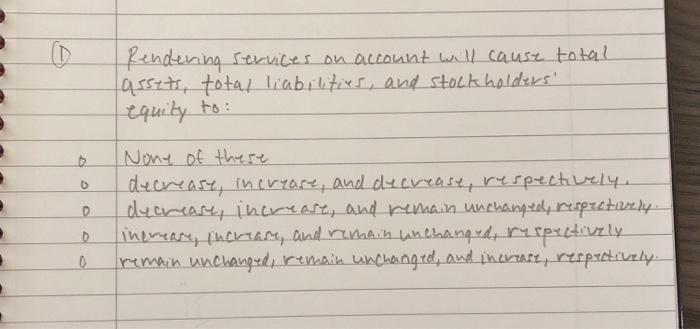 ① Rendering services on account will cause total
assets, total liabilities, and stockholders'
equity to:
o None of these
o decrease, increase, and decrease, respectively.
o decrease, increase, and remain unchanged, respectively.
o increase, increase, and remain unchanged, respectively
o remain unchanged, remain unchanged, and increase, respectively.